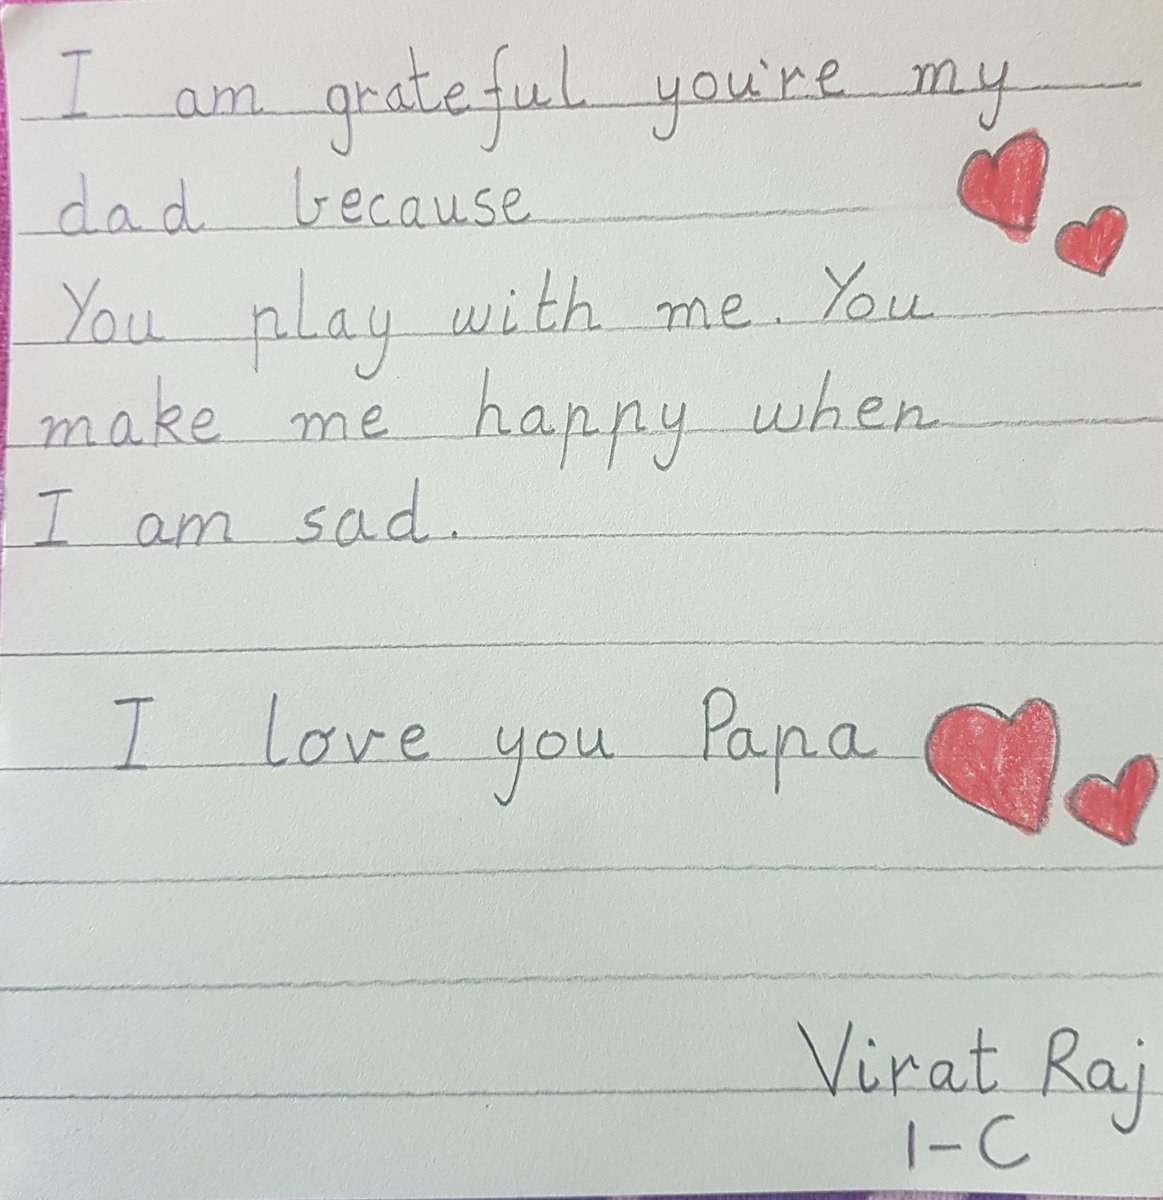 I am grateful you're my
dad because
You play with me. You
make me happy when
I am sad.
I love you Papa
Virat Raj
1-C